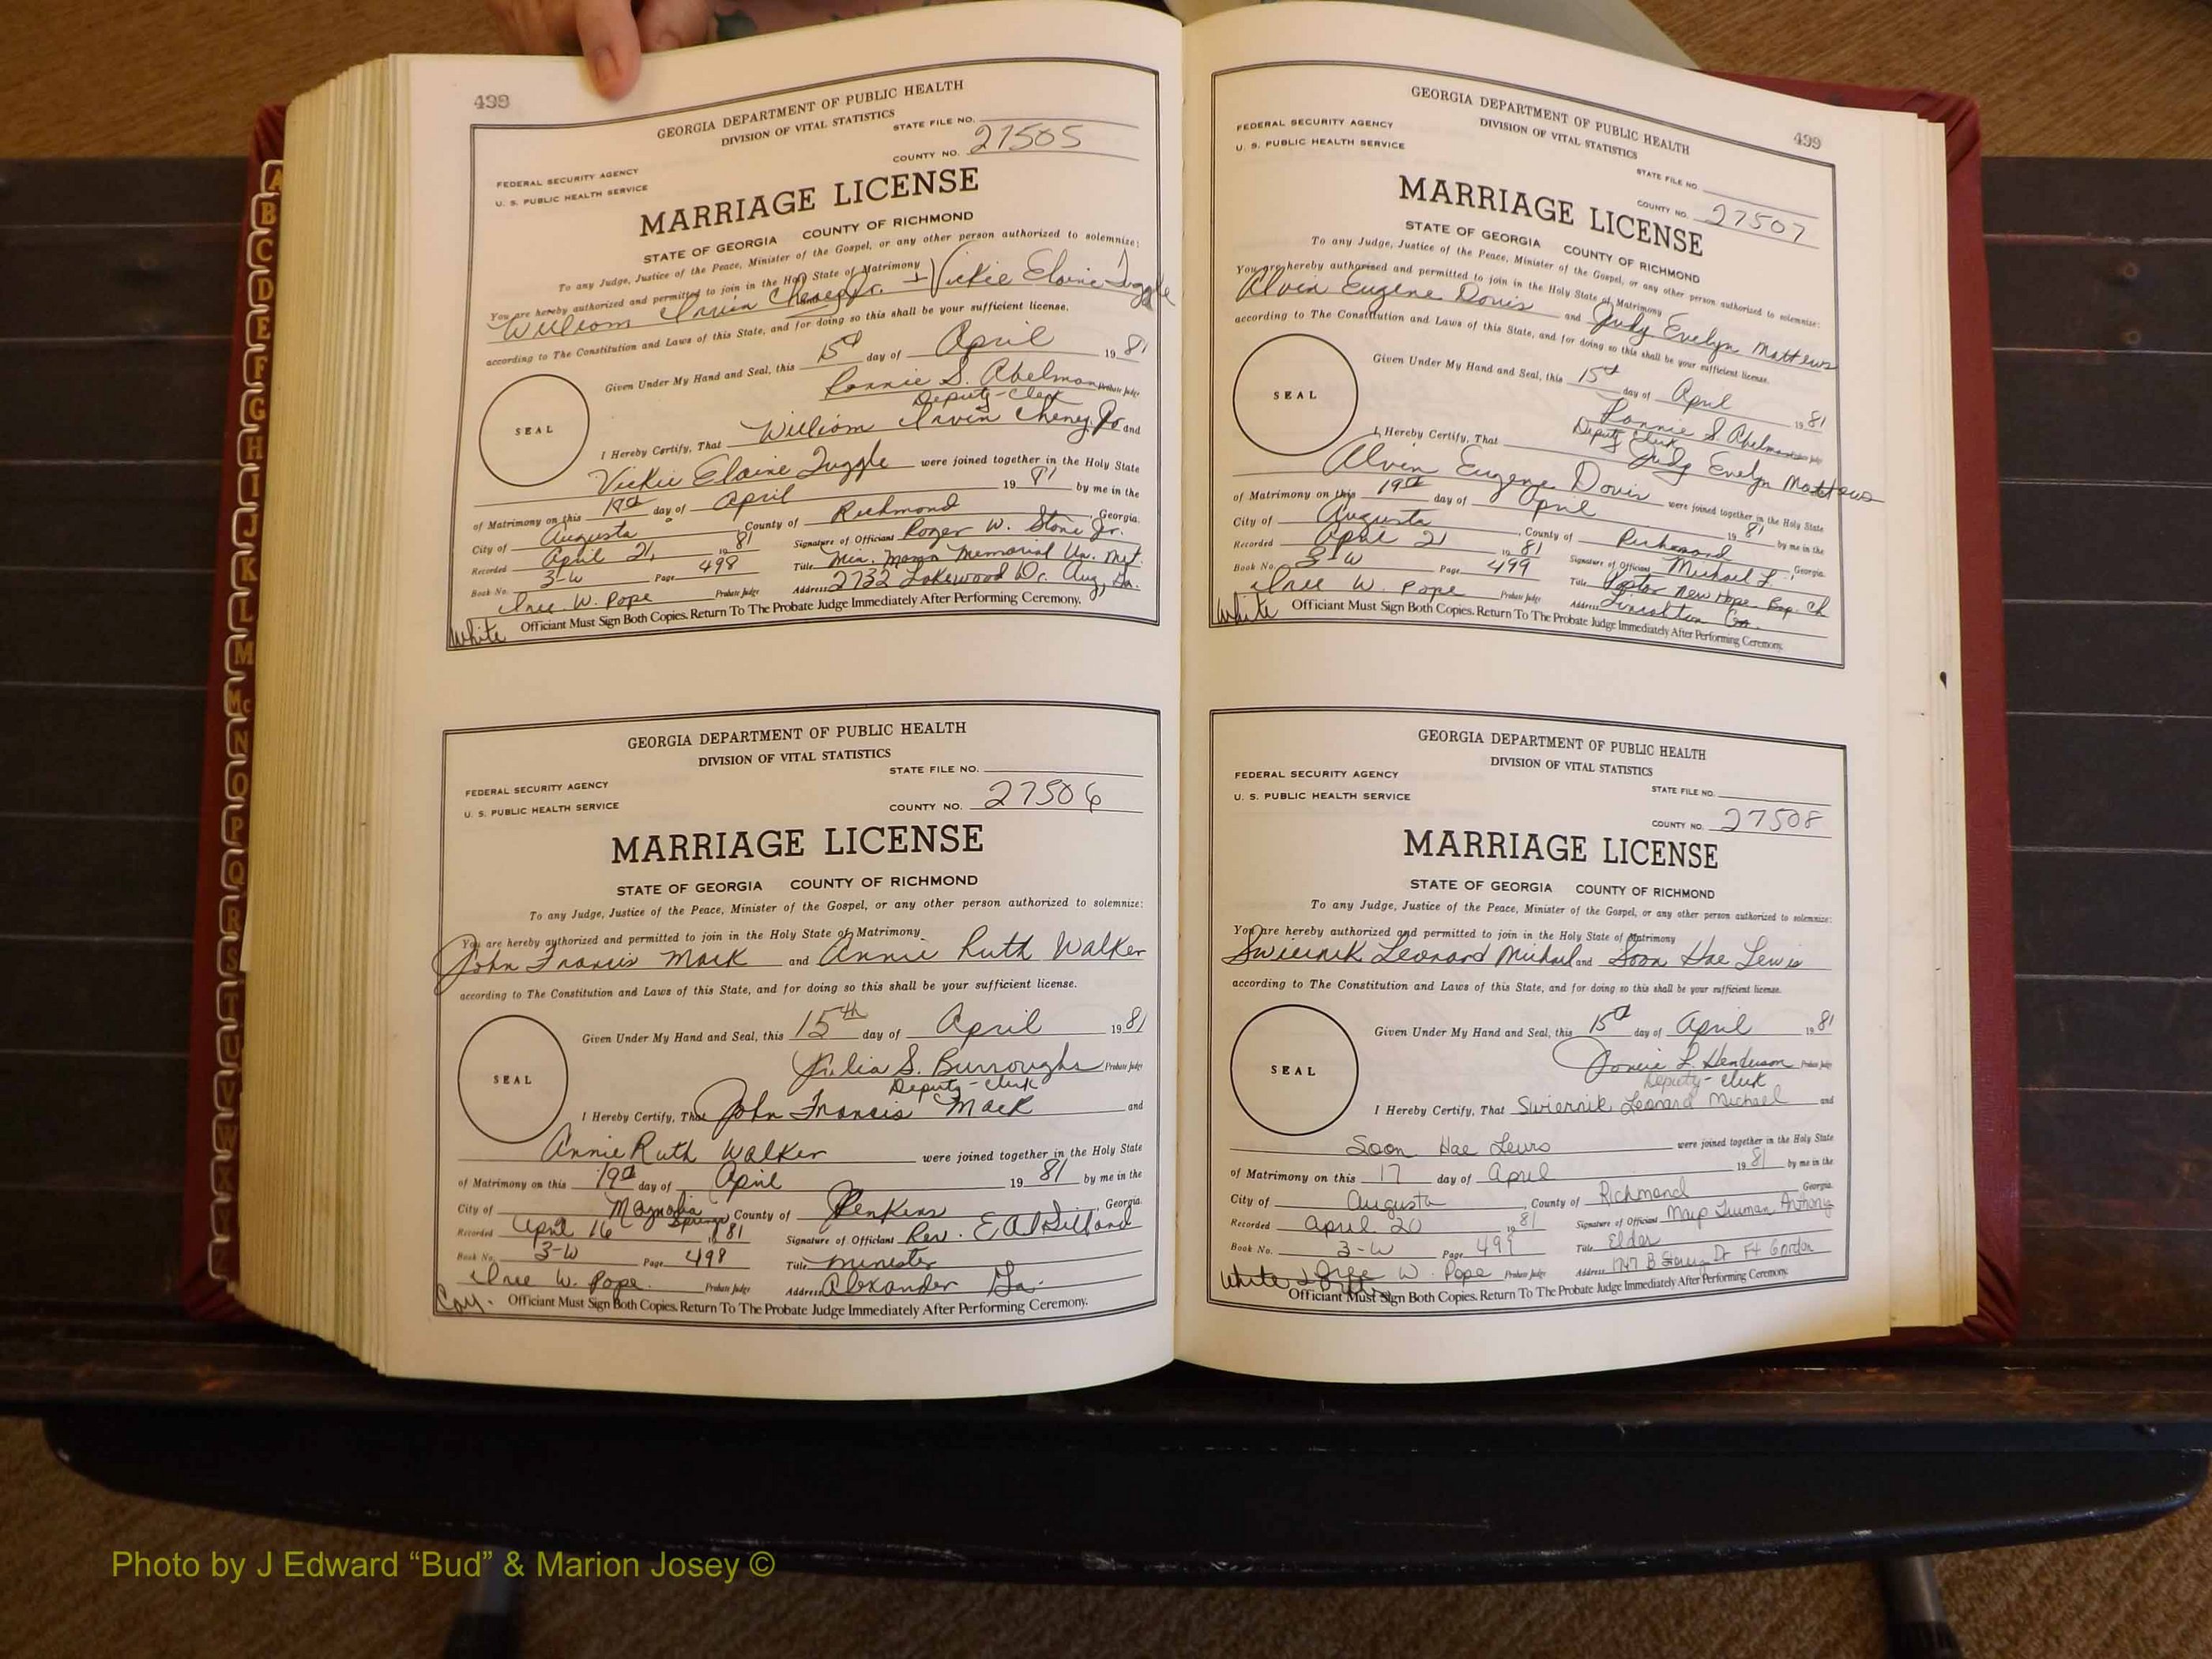 A
B
C
D
E
F
G
H
I
J
K
L
M
Mc
N
O
P
Q
R
S
T
U
V
W
498
GEORGIA DEPARTMENT OF PUBLIC HEALTH
DIVISION OF VITAL STATISTICS
STATE FILE NO.
COUNTY NO. 27505
FEDERAL SECURITY AGENCY
U. S. PUBLIC HEALTH SERVICE
MARRIAGE LICENSE
STATE OF GEORGIA COUNTY OF RICHMOND
To any Judge, Justice of the Peace, Minister of the Gospel, or any other person authorized to solemnize:
You are hereby authorized and permitted to join in the Holy State of Matrimony
William Irvin Cheney Jr. + Vickie Elaine Tuggle
according to The Constitution and Laws of this State, and for doing so this shall be your sufficient license.
Given Under My Hand and Seal, this 15th day of April 1981
Ronnie S. Abelman Probate Judge
Deputy-Clerk
SEAL
I Hereby Certify, That William Irvin Cheney, Jr. and
Vickie Elaine Tuggle were joined together in the Holy State
of Matrimony on this 19th day of April 1981 by me in the
City of Augusta County of Richmond, Georgia.
Recorded April 21, 1981 Signature of Officiant Roger W. Stone Jr.
Book No. 3-W Page 498 Title Min. Mann Memorial Un. Met.
Iree W. Pope Probate Judge Address 2732 Lakewood Dr. Aug, Ga.
White Officiant Must Sign Both Copies. Return To The Probate Judge Immediately After Performing Ceremony.
GEORGIA DEPARTMENT OF PUBLIC HEALTH
DIVISION OF VITAL STATISTICS
STATE FILE NO.
FEDERAL SECURITY AGENCY
U. S. PUBLIC HEALTH SERVICE
COUNTY NO. 27506
MARRIAGE LICENSE
STATE OF GEORGIA COUNTY OF RICHMOND
To any Judge, Justice of the Peace, Minister of the Gospel, or any other person authorized to solemnize:
You are hereby authorized and permitted to join in the Holy State of Matrimony
John Francis Mack and Annie Ruth Walker
according to The Constitution and Laws of this State, and for doing so this shall be your sufficient license.
Given Under My Hand and Seal, this 15th day of April 1981
Julia S. Burroughs Probate Judge
Deputy-Clerk
SEAL
I Hereby Certify, That John Francis Mack and
Annie Ruth Walker were joined together in the Holy State
of Matrimony on this 19th day of April 1981 by me in the
City of Magnolia Springs County of Jenkins, Georgia.
Recorded April 16 1981 Signature of Officiant Rev. E A Dilland
Book No. 3-W Page 498 Title Minister
Iree W. Pope Probate Judge Address Alexander Ga.
Col. Officiant Must Sign Both Copies. Return To The Probate Judge Immediately After Performing Ceremony.
499
GEORGIA DEPARTMENT OF PUBLIC HEALTH
DIVISION OF VITAL STATISTICS
FEDERAL SECURITY AGENCY
U. S. PUBLIC HEALTH SERVICE
STATE FILE NO.
COUNTY NO. 27507
MARRIAGE LICENSE
STATE OF GEORGIA COUNTY OF RICHMOND
To any Judge, Justice of the Peace, Minister of the Gospel, or any other person authorized to solemnize:
You are hereby authorized and permitted to join in the Holy State of Matrimony
Alvin Eugene Davis and Judy Evelyn Matthews
according to The Constitution and Laws of this State, and for doing so this shall be your sufficient license.
Given Under My Hand and Seal, this 15th day of April 1981
Ronnie S. Abelman Probate Judge
Deputy Clerk
SEAL
I Hereby Certify, That Judy Evelyn Matthews
Alvin Eugene Davis were joined together in the Holy State
of Matrimony on this 19th day of April 1981 by me in the
City of Augusta, County of Richmond, Georgia.
Recorded April 21 1981 Signature of Officiant Michael L.
Book No. 3-W Page 499 Title Pastor New Hope Bap. Ch
Iree W. Pope Probate Judge Address Lincolnton Ga.
White Officiant Must Sign Both Copies. Return To The Probate Judge Immediately After Performing Ceremony.
GEORGIA DEPARTMENT OF PUBLIC HEALTH
DIVISION OF VITAL STATISTICS
FEDERAL SECURITY AGENCY
U. S. PUBLIC HEALTH SERVICE
STATE FILE NO.
COUNTY NO. 27508
MARRIAGE LICENSE
STATE OF GEORGIA COUNTY OF RICHMOND
To any Judge, Justice of the Peace, Minister of the Gospel, or any other person authorized to solemnize:
You are hereby authorized and permitted to join in the Holy State of Matrimony
Swiernik Leonard Michael and Soon Hae Lewis
according to The Constitution and Laws of this State, and for doing so this shall be your sufficient license.
Given Under My Hand and Seal, this 15th day of April 1981
L. Henderson Probate Judge
Deputy-Clerk
SEAL
I Hereby Certify, That Swiernik Leonard Michael and
Soon Hae Lewis were joined together in the Holy State
of Matrimony on this 17 day of April 1981 by me in the
City of Augusta, County of Richmond, Georgia.
Recorded April 20 1981 Signature of Officiant Truman Anthony
Book No. 3-W Page 499 Title Elder
Iree W. Pope Probate Judge Address 1747 B Dr Ft Gordon
White Officiant Must Sign Both Copies. Return To The Probate Judge Immediately After Performing Ceremony.
Photo by J Edward “Bud” & Marion Josey ©